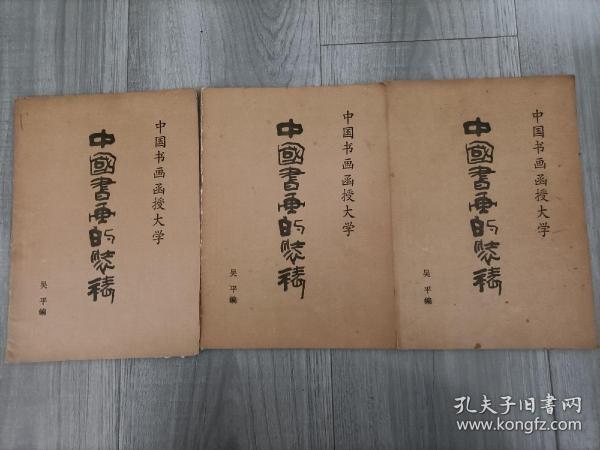 中国书画函授大学
中國書画的装裱
吴平编
中国书画函授大学
中國書画的装裱
吴平编
中国书画函授大学
中國書画的装裱
吴平编
孔夫子旧书网
www.kongfz.com